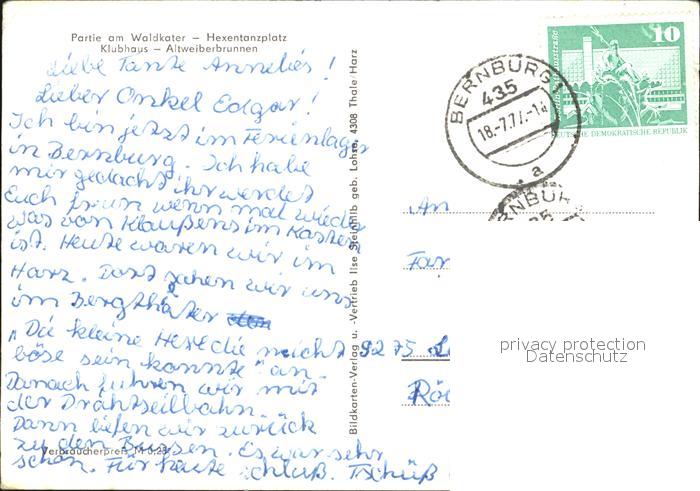 Partie am Waldkater – Hexentanzplatz
Klubhaus – Altweiberbrunnen
Liebe Tante Annelies!
Lieber Onkel Edgar!
Ich bin jetzt im Ferienlager
in Bernburg. Ich habe
mir gedacht ihr werdet
Euch freun wenn mal wieder
was von Klaußens im Kasten
ist. Heute waren wir im
Harz. Dort sahen wir uns
im Bergthäter
„Die kleine Hexe die nicht
böse sein konnte" an.
Danach fuhren wir mit
der Drahtseilbahn.
Dann liefen wir zurück
zu den Bussen. Es war sehr
schön. Für heute schluß. Tschüß
Verbraucherpreis M 0,25
Bildkarten-Verlag u. -Vertrieb Ilse Steinhilb geb. Lohse, 4308 Thale/Harz
10
DEUTSCHE DEMOKRATISCHE REPUBLIK
BERNBURG 1
435
18.-7.77.-18
a
BERNBURG
35
An
Fam
9275 L
Röd
privacy protection
Datenschutz